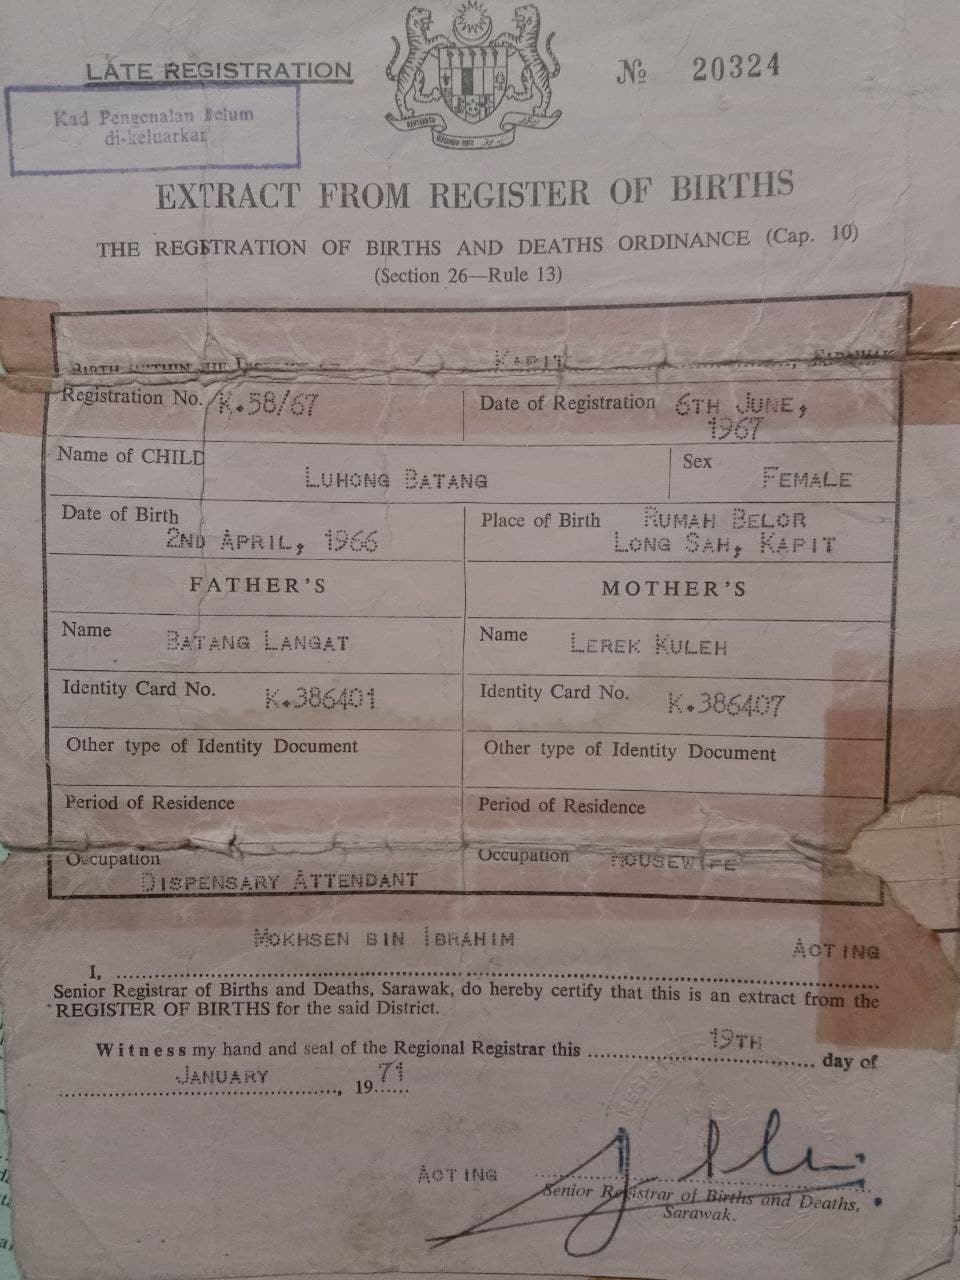 LATE REGISTRATION
№ 20324
Kad Pengenalan Belum
di-keluarkan
EXTRACT FROM REGISTER OF BIRTHS
THE REGISTRATION OF BIRTHS AND DEATHS ORDINANCE (Cap. 10)
(Section 26—Rule 13)
BIRTH WITHIN THE KAPIT, SARAWAK
Registration No. K.58/67
Date of Registration 6TH JUNE,
1967
Name of CHILD
LUHONG BATANG
Sex
FEMALE
Date of Birth
2ND APRIL, 1966
Place of Birth RUMAH BELOR
LONG SAH, KAPIT
FATHER'S
MOTHER'S
Name BATANG LANGAT
Name LEREK KULEH
Identity Card No. K.386401
Identity Card No. K.386407
Other type of Identity Document
Other type of Identity Document
Period of Residence
Period of Residence
Occupation
DISPENSARY ATTENDANT
Occupation HOUSEWIFE
MOKHSEN BIN IBRAHIM ACTING
I, ........................
Senior Registrar of Births and Deaths, Sarawak, do hereby certify that this is an extract from the
REGISTER OF BIRTHS for the said District.
Witness my hand and seal of the Regional Registrar this 19TH day of
JANUARY, 1971
ACTING
Senior Registrar of Births and Deaths,
Sarawak.